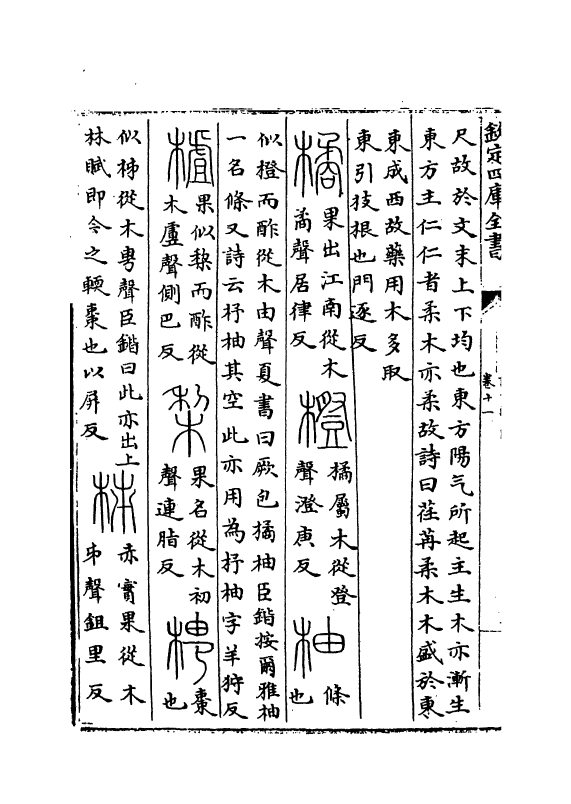 欽定四庫全書
卷十一
尺故於文末上下均也東方陽气所起主生木亦漸生
東方主仁仁者柔木亦柔故詩曰荏苒柔木木盛於東
東成西故藥用木多取
東引枝根也門逐反
橘果出江南從木
矞聲居律反
橙橘屬木從登
聲澄庚反
柚條
也
似橙而酢從木由聲夏書曰厥包橘柚臣鍇按爾雅柚
一名條又詩云杼柚其空此亦用為杼柚字羊狩反
樝果似棃而酢從
木盧聲側巴反
棃果名從木初
聲連脂反
梬棗
也
似柹從木甹聲臣鍇曰此亦出上
林賦即今之輭棗也以屏反
柹赤實果從木
𠂔聲鉏里反